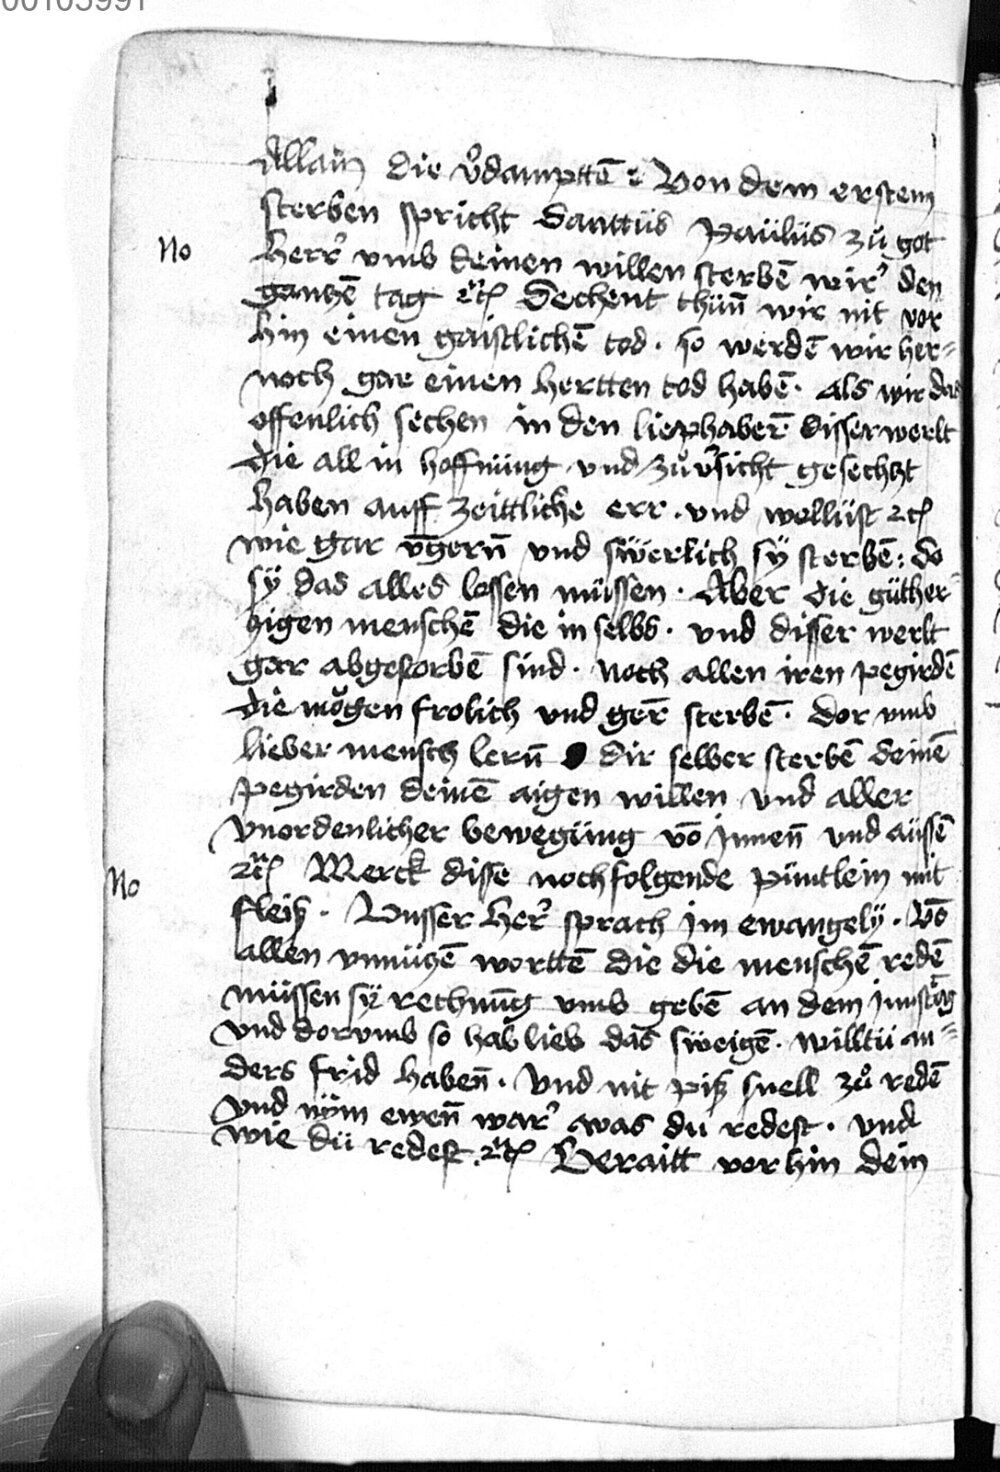 00103991
Allain die v̄dampttē : Von dem erstem
sterben spricht Santtüs Paülüs zů got
No
Herr umb deinen willen sterbē wir den
gantzē tag ꝛc̄ Sechent thün̄ wir nit vor
hin einen gaistlichē tod · so werdē wir her⸗
noch gar einen hertten tod habē · als wir das
offenlich sechen in den liephaber̄ disser werlt
die all ir hoffnüng vnd zův̄sicht gesechtzt
haben auff zeittliche err · vnd wollüst ꝛc̄
wie gar v̄gern̄ vnd swërlich sÿ sterbē : do
sÿ das alles lossen müssen · Aber die güther⸗
tzigen menschē die in selbs · vnd disser werlt
gar abgestorbē sind · noch allen iren pegirdē
die mögen frolich vnd ger̄ sterbē · Dor umb
lieber mensch lern̄ dir selber sterbē deinē
pegirden deinē aigen willen vnd aller
vnordenlicher bewegüng vō jnnen̄ vnd aüssē
ꝛc̄ Merck disse nochfolgende püntlein mit
No
fleiß · Vnsser Her sprach jm ewangelÿ · Vō
allen vnnützē worttē die die menschē redē
müssen sÿ rechnün̄g umb gebē an dem junstā tag
vnd dorumb so hab lieb das sweigē · willtü an⸗
ders frid haben̄ · Vnd nit piß snell zů redē
vnd nÿm ewen̄ war was du redest · vnd
wie dü redest · ꝛc̄ Beraitt vor hin dein